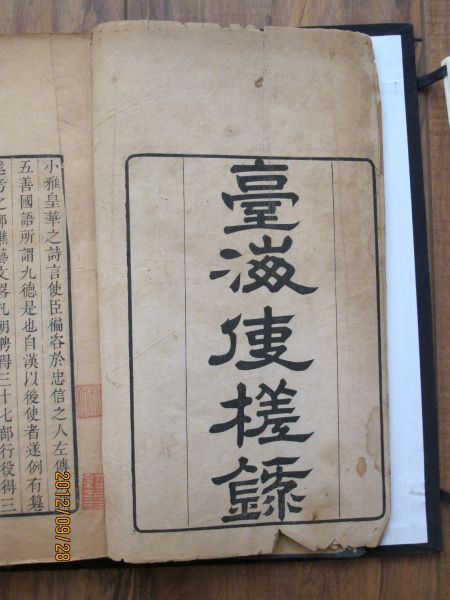 臺海使槎錄
小雅皇華之詩言使臣徧咨於忠信之人左傳
五善國語所謂九德是也自漢以後使者遂例有篹
聘得三十七部行役得三
2012/09/28